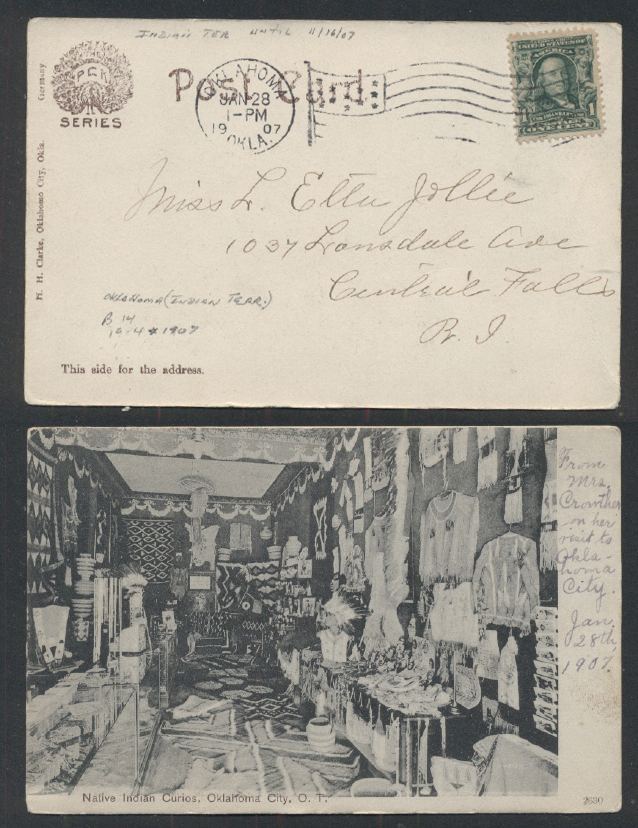 INDIAN TER UNTIL 11/16/07
PCK
SERIES
Germany
H. H. Clarke, Oklahoma City, Okla.
Post Card.
OKLAHOMA
JAN 28
1-PM
19 07
OKLA.
UNITED STATES OF AMERICA
1 1
ONE CENT
Miss L. Etta Jollie
1037 Lonsdale Ave
Central Falls
R. I.
OKLAHOMA (INDIAN TERR.)
B 14
19-4 1907
This side for the address.
From
Mrs.
Crowther
on her
visit to
Okla-
homa
City.
Jan.
28th,
1907.
Native Indian Curios, Oklahoma City, O. T.
2630